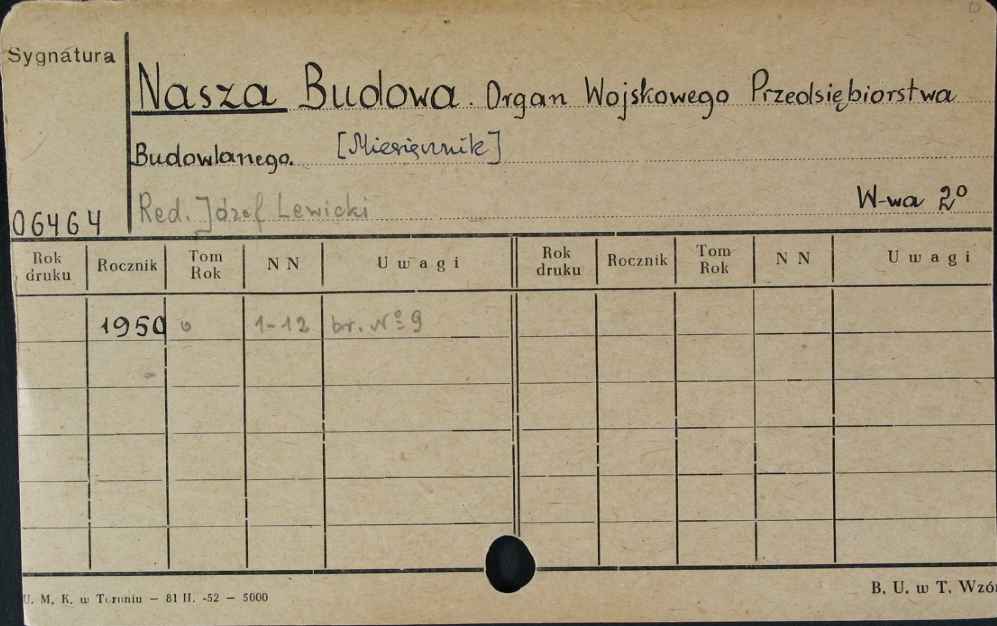 Sygnatura
Nasza Budowa. Organ Wojskowego Przedsiębiorstwa
Budowlanego. [Miesięcznik]
06464 Red. Józef Lewicki W-wa 2°
Rok druku Rocznik Tom Rok N N Uwagi Rok druku Rocznik Tom Rok N N Uwagi
1950 1-12 br. № 9
U. M. K. w Toruniu — 81 II. -52 — 5000 B. U. w T. Wzór